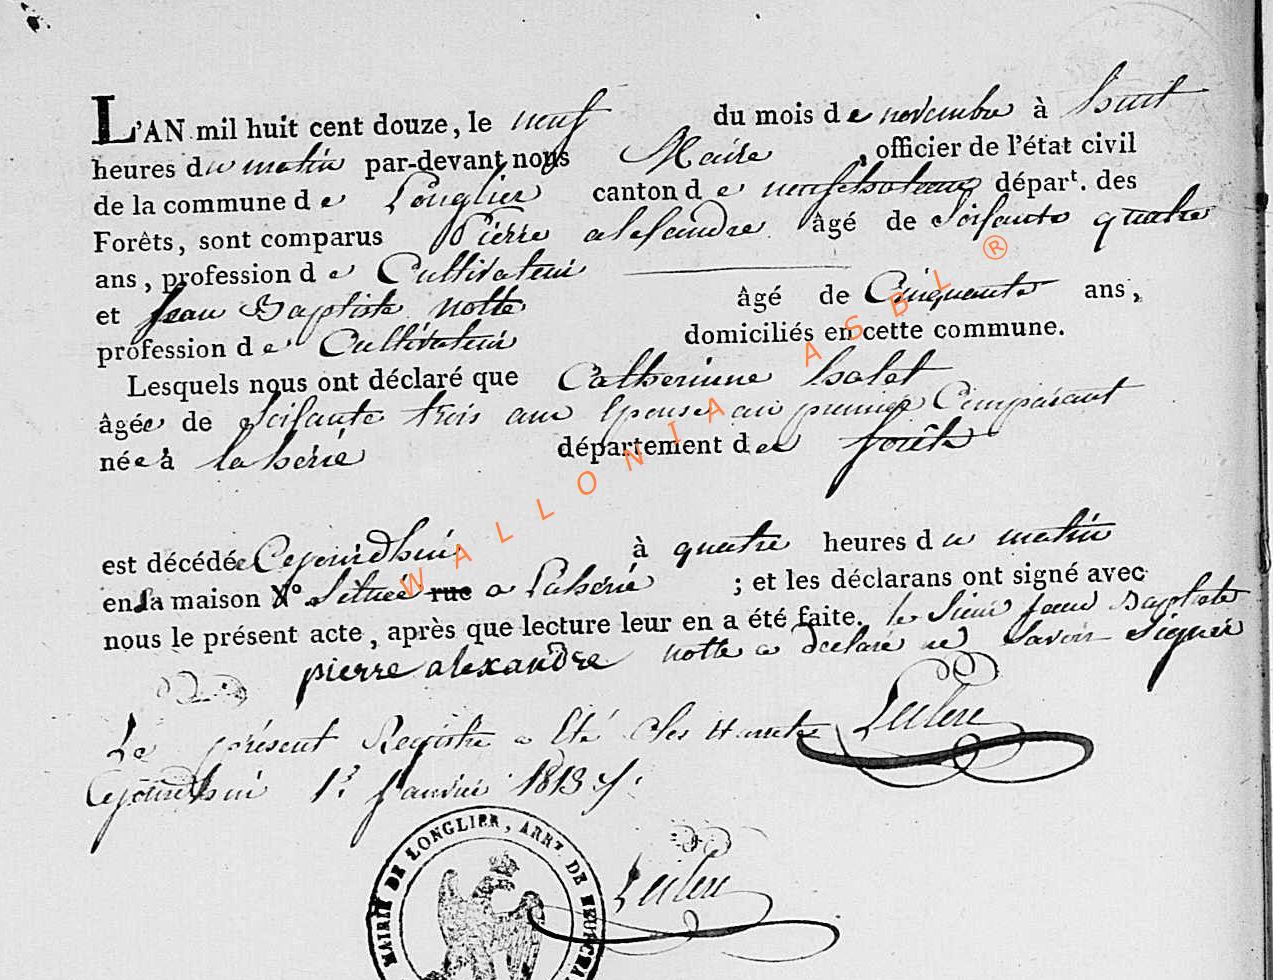 L'AN mil huit cent douze, le neuf du mois de novembre à huit
heures du matin par-devant nous Maire, officier de l'état civil
de la commune de Longlier canton de neufchateau départ. des
Forêts, sont comparus Pierre alexandre âgé de soisante quatre
ans, profession de Cultivateur
et Jean Baptiste notte âgé de Cinquante ans,
profession de Cultivateur domiciliés en cette commune.
Lesquels nous ont déclaré que Catherinne
âgée de soisante trois ans Epouse au premier Comparant
née à laherie département de forêts
est décédée Cejourdhui à quatre heures du matin
en sa maison N° située rue a Laherie ; et les déclarans ont signé avec
nous le présent acte, après que lecture leur en a été faite. le sieur jean Baptiste
pierre alexandre notte a declaré ne savoir signer
Le présent Registre a Eté Clos
Cejourdhui 1r janvier 1813
MAIRIE DE LONGLIER, ARRT. DE NEUFCHA
WALLONIA ASBL ®